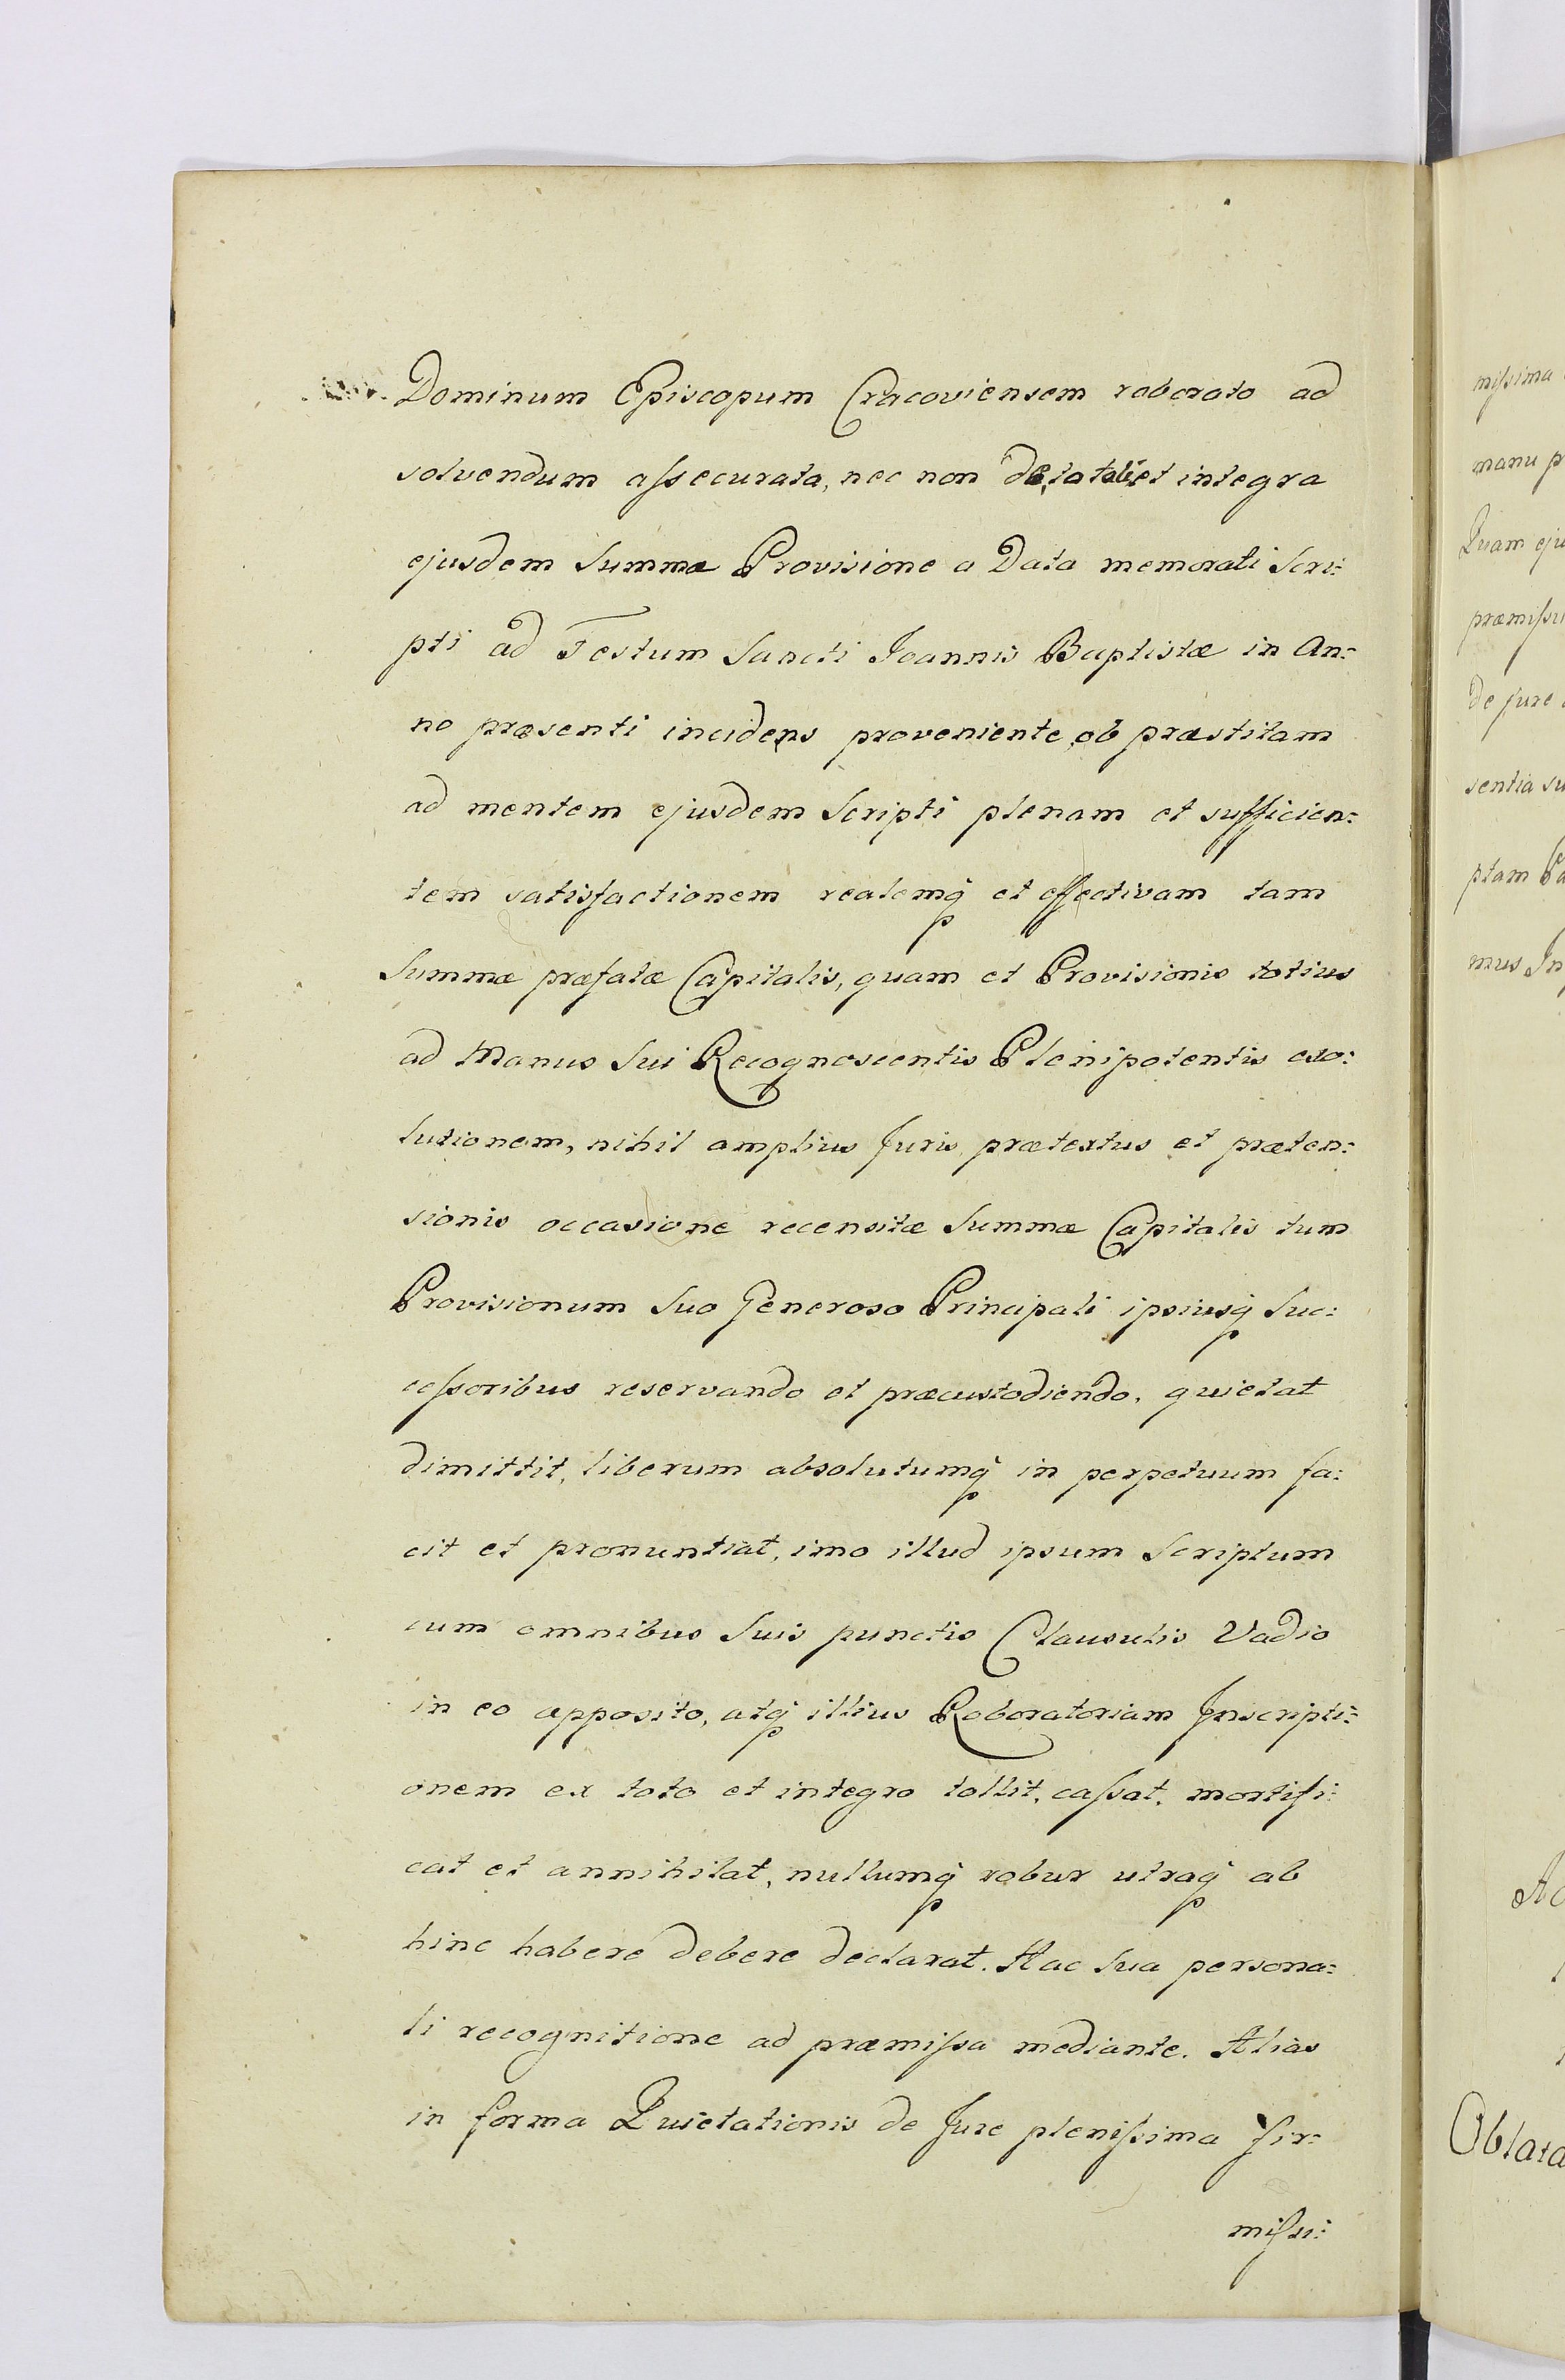 Dominum Episcopum Cracoviensem roborato ad
solvendum assecurata, nec non de totali et integra
ejusdem Summæ Provisione a Data memorati Scri:
pti ad Festum Sancti Joannis Baptistæ in An:
no præsenti incidens proveniente ob præstitam
ad mentem ejusdem Scripti plenam et sufficien:
tem satisfactionem realemq̃ et effectivam tam
Summæ præfatæ Capitalis, quam et Provisionis totius
ad Manus Sui Recognoscentis Plenipotentis exo:
lutionem, nihil amplius Juris prætextus et præten:
sionis occasione recensitæ Summæ Capitalis tum
Provisionum Suo Generoso Principali ipsiusq̃ Suc:
cessoribus reservando et præcustodiendo, quietat
dimittit, liberum absolutumq̃ in perpetuum fa:
cit et pronuntiat, imo illud ipsum Scriptum
cum omnibus Suis punctis Clausulis Vadio
in eo apposito, atq̃ illius Roboratoriam Inscripti:
onem ex toto et integro tollit, cassat, mortifi:
cat et annihilat, nullumq̃ robur utraq̃ ab
hinc habere debere declarat. Hac Sua persona:
li recognitione ad præmissa mediante. Alias
in forma Quietationis de Jure plenissima fir:
missi:
missima
manu
Quam
de jure
sentia
ptam
mus
Oblata